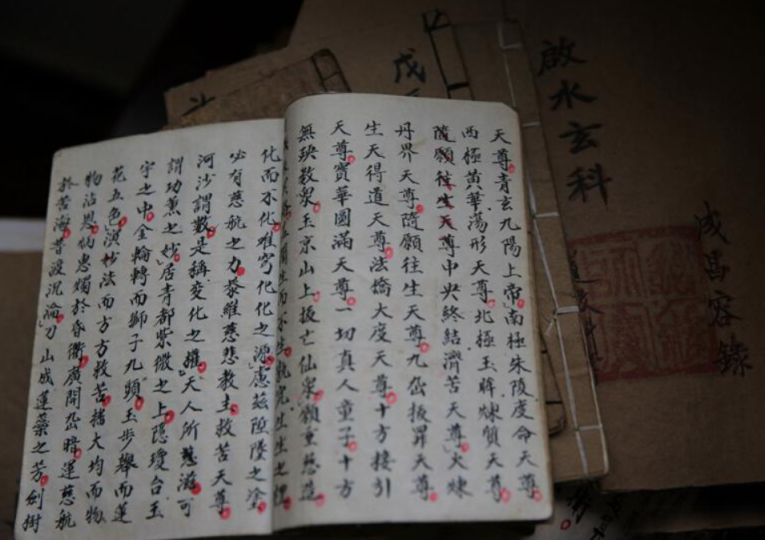 天尊青玄九陽上帝南極朱陵度命天尊
西極黃華蕩形天尊北極玉眸煉質天尊
隨願往生天尊中央終結濟苦天尊火煉
丹界天尊隨願往生天尊九幽拔罪天尊
生天得道天尊法橋大度天尊十方接引
天尊寶華圓滿天尊一切真人童子十方
無鞅數眾玉京山上拔亡仙眾願垂慈造
化而不化难穷化化之源慮茲陰陵之塗
必有慈航之力恭維慈悲教主救苦天尊
河沙謂數是稱變化之權天人所
謂功薰之妙居青都紫微之上隱瓊台玉
宇之中金輪轉而獅子九頭玉步舉而蓮
花五色演妙法而方方救苦播大均而物
物沾恩炳惠燭於昏衢廣開幽暗運慈航
於苦海普渡沉淪刀山成蓮蕊之芳劍樹
啟水玄科
成昌容錄
戊